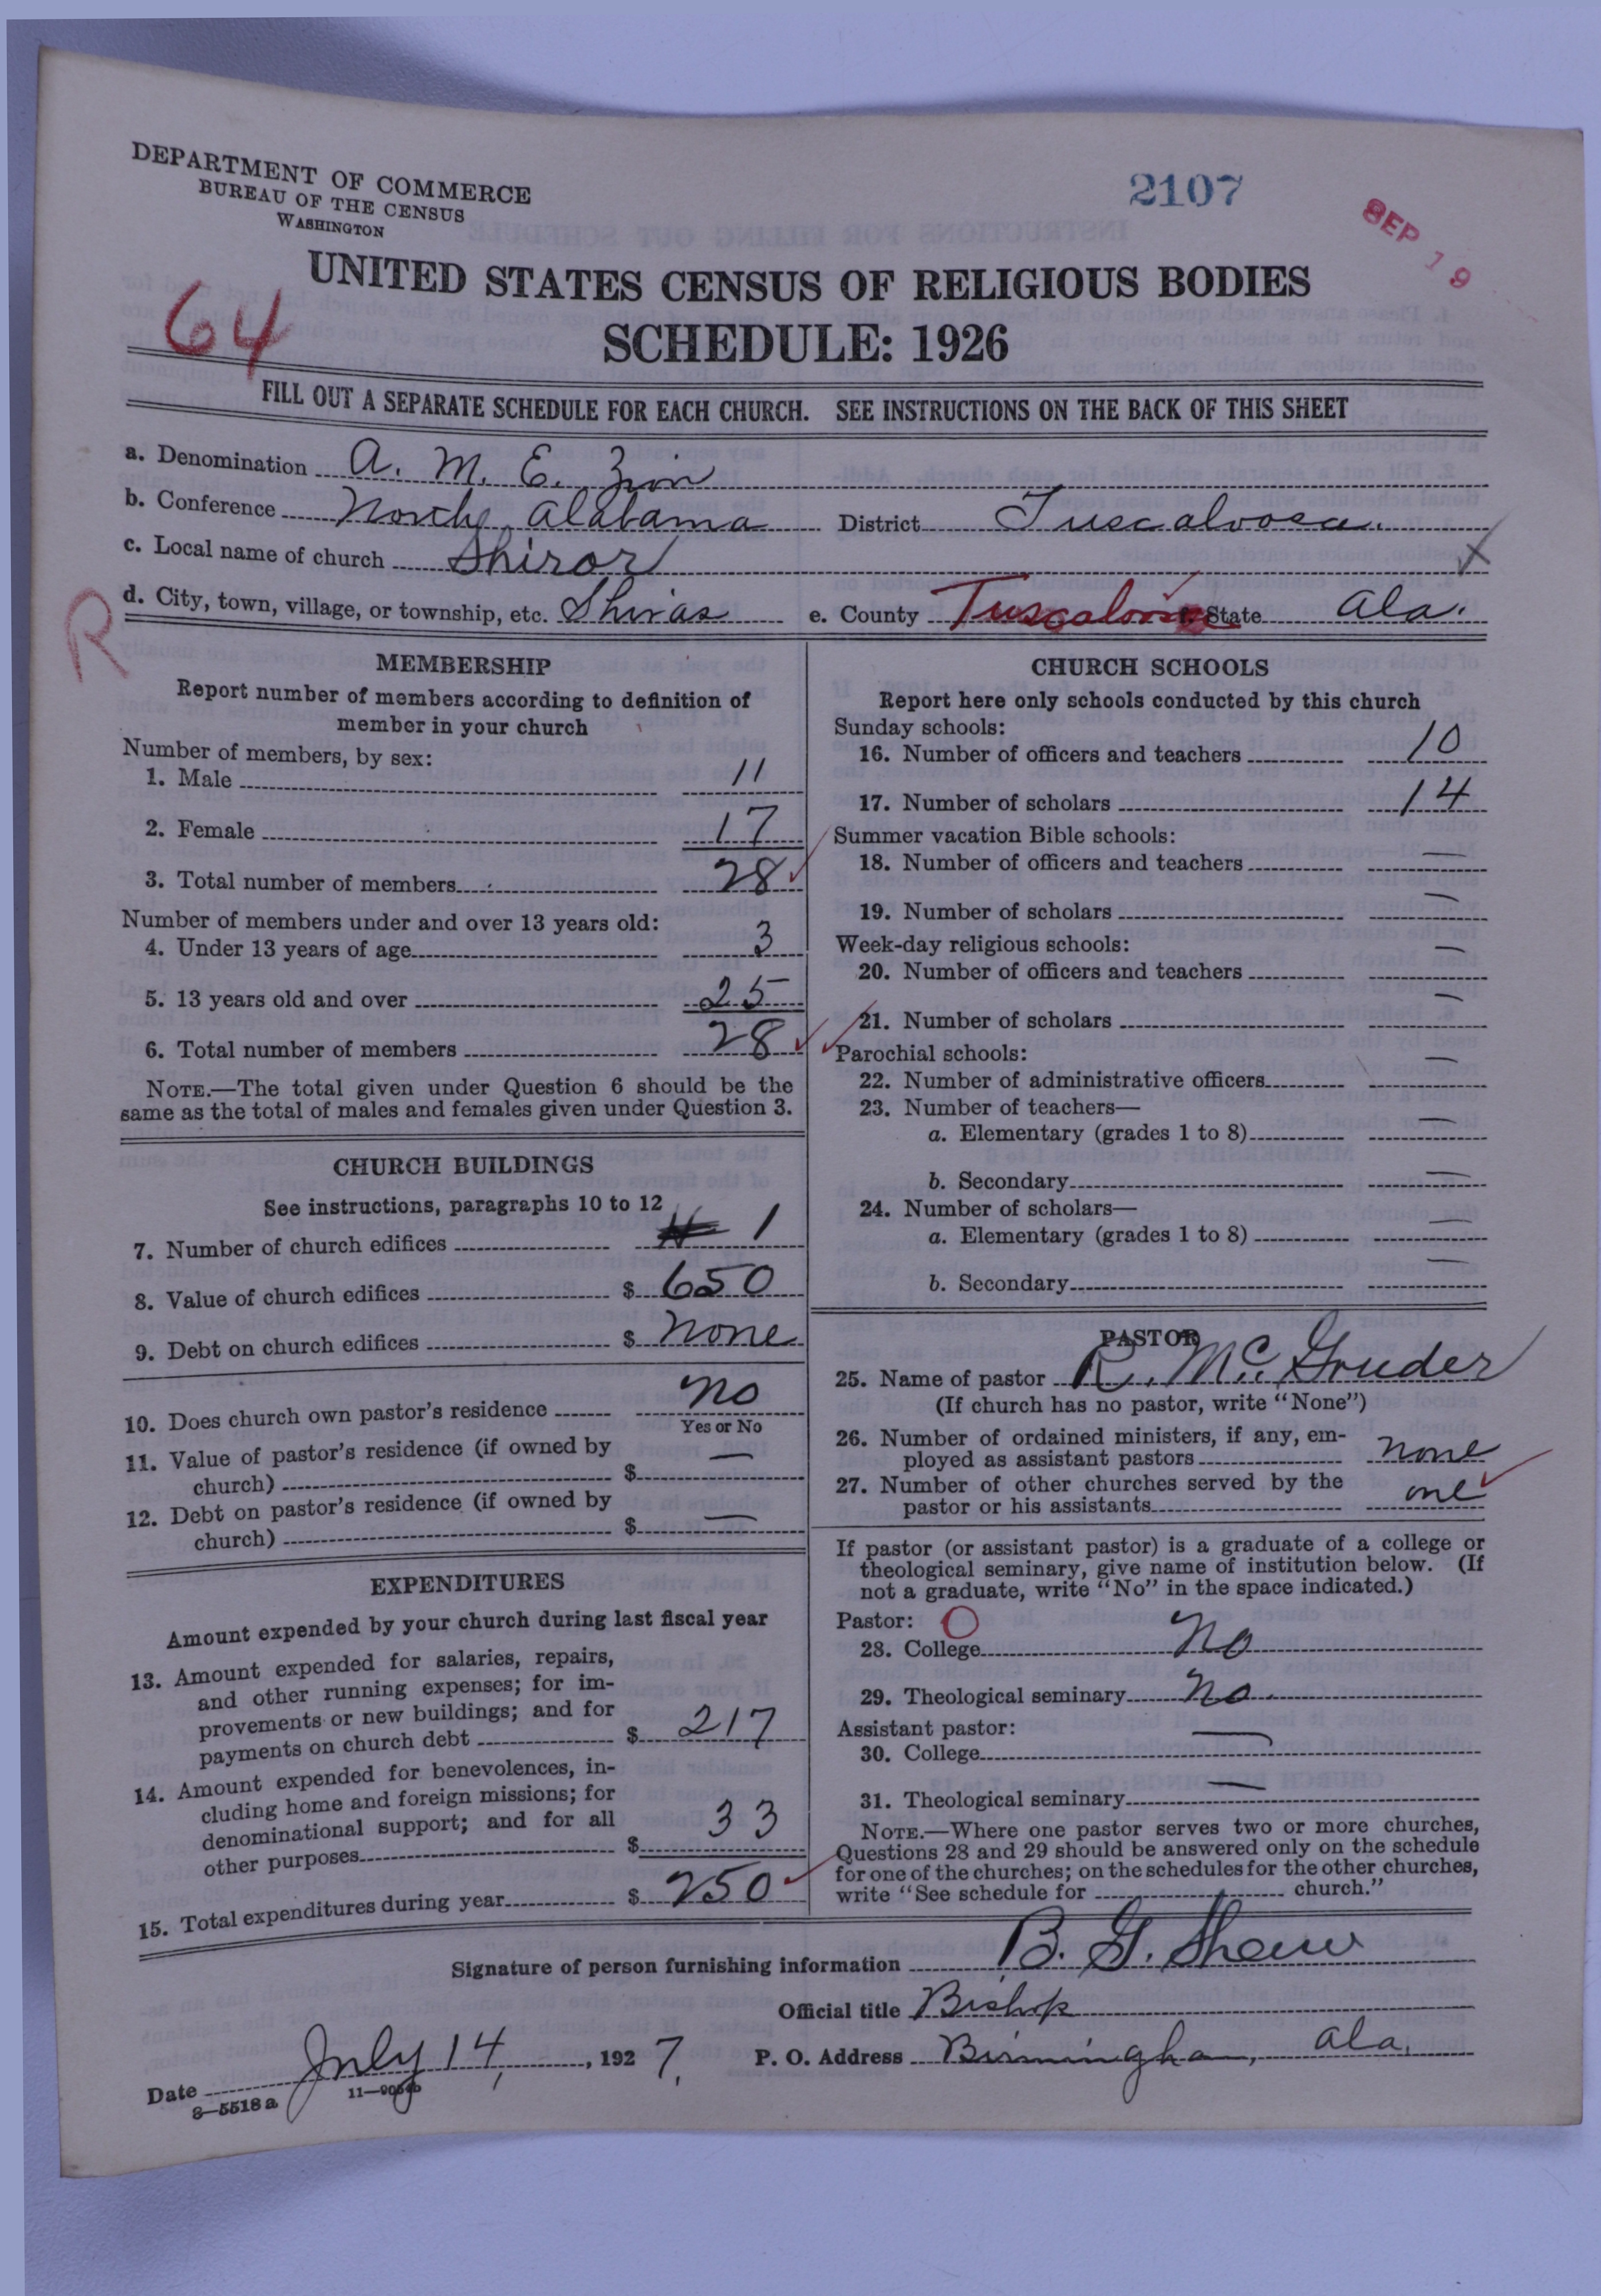 DEPARTMENT OF COMMERCE
BUREAU OF THE CENSUS
WASHINGTON
2107
SEP 19
UNITED STATES CENSUS OF RELIGIOUS BODIES
64
SCHEDULE: 1926
FILL OUT A SEPARATE SCHEDULE FOR EACH CHURCH. SEE INSTRUCTIONS ON THE BACK OF THIS SHEET
a. Denomination A. M. E. Zion
b. Conference North Alabama District Tuscaloosa.
c. Local name of church Shiror X
R
d. City, town, village, or township, etc. Shiras e. County Tuscaloosa f. State Ala.
MEMBERSHIP
Report number of members according to definition of
member in your church
Number of members, by sex:
1. Male 11
2. Female 17
3. Total number of members 28
Number of members under and over 13 years old:
4. Under 13 years of age 3
5. 13 years old and over 25
6. Total number of members 28
NOTE.—The total given under Question 6 should be the
same as the total of males and females given under Question 3.
CHURCH BUILDINGS
See instructions, paragraphs 10 to 12
7. Number of church edifices 1
8. Value of church edifices $ 650
9. Debt on church edifices $ none
10. Does church own pastor's residence no
Yes or No
11. Value of pastor's residence (if owned by
church) $ —
12. Debt on pastor's residence (if owned by
church) $ —
EXPENDITURES
Amount expended by your church during last fiscal year
13. Amount expended for salaries, repairs,
and other running expenses; for im-
provements or new buildings; and for
payments on church debt $ 217
14. Amount expended for benevolences, in-
cluding home and foreign missions; for
denominational support; and for all
other purposes $ 33
15. Total expenditures during year $ 250
CHURCH SCHOOLS
Report here only schools conducted by this church
Sunday schools:
16. Number of officers and teachers 10
17. Number of scholars 14
Summer vacation Bible schools:
18. Number of officers and teachers —
19. Number of scholars —
Week-day religious schools:
20. Number of officers and teachers —
21. Number of scholars —
Parochial schools:
22. Number of administrative officers —
23. Number of teachers—
a. Elementary (grades 1 to 8) —
b. Secondary —
24. Number of scholars—
a. Elementary (grades 1 to 8) —
b. Secondary —
PASTOR
25. Name of pastor R. Mc. Gruder
(If church has no pastor, write "None")
26. Number of ordained ministers, if any, em-
ployed as assistant pastors none
27. Number of other churches served by the
pastor or his assistants one
If pastor (or assistant pastor) is a graduate of a college or
theological seminary, give name of institution below. (If
not a graduate, write "No" in the space indicated.)
Pastor: O
28. College No
29. Theological seminary no.
Assistant pastor:
30. College —
31. Theological seminary —
NOTE.—Where one pastor serves two or more churches,
Questions 28 and 29 should be answered only on the schedule
for one of the churches; on the schedules for the other churches,
write "See schedule for church."
Signature of person furnishing information B. G. Shaw
Official title Bishop
Date July 14, 1927. P. O. Address Birmingham, Ala.
8—5518a